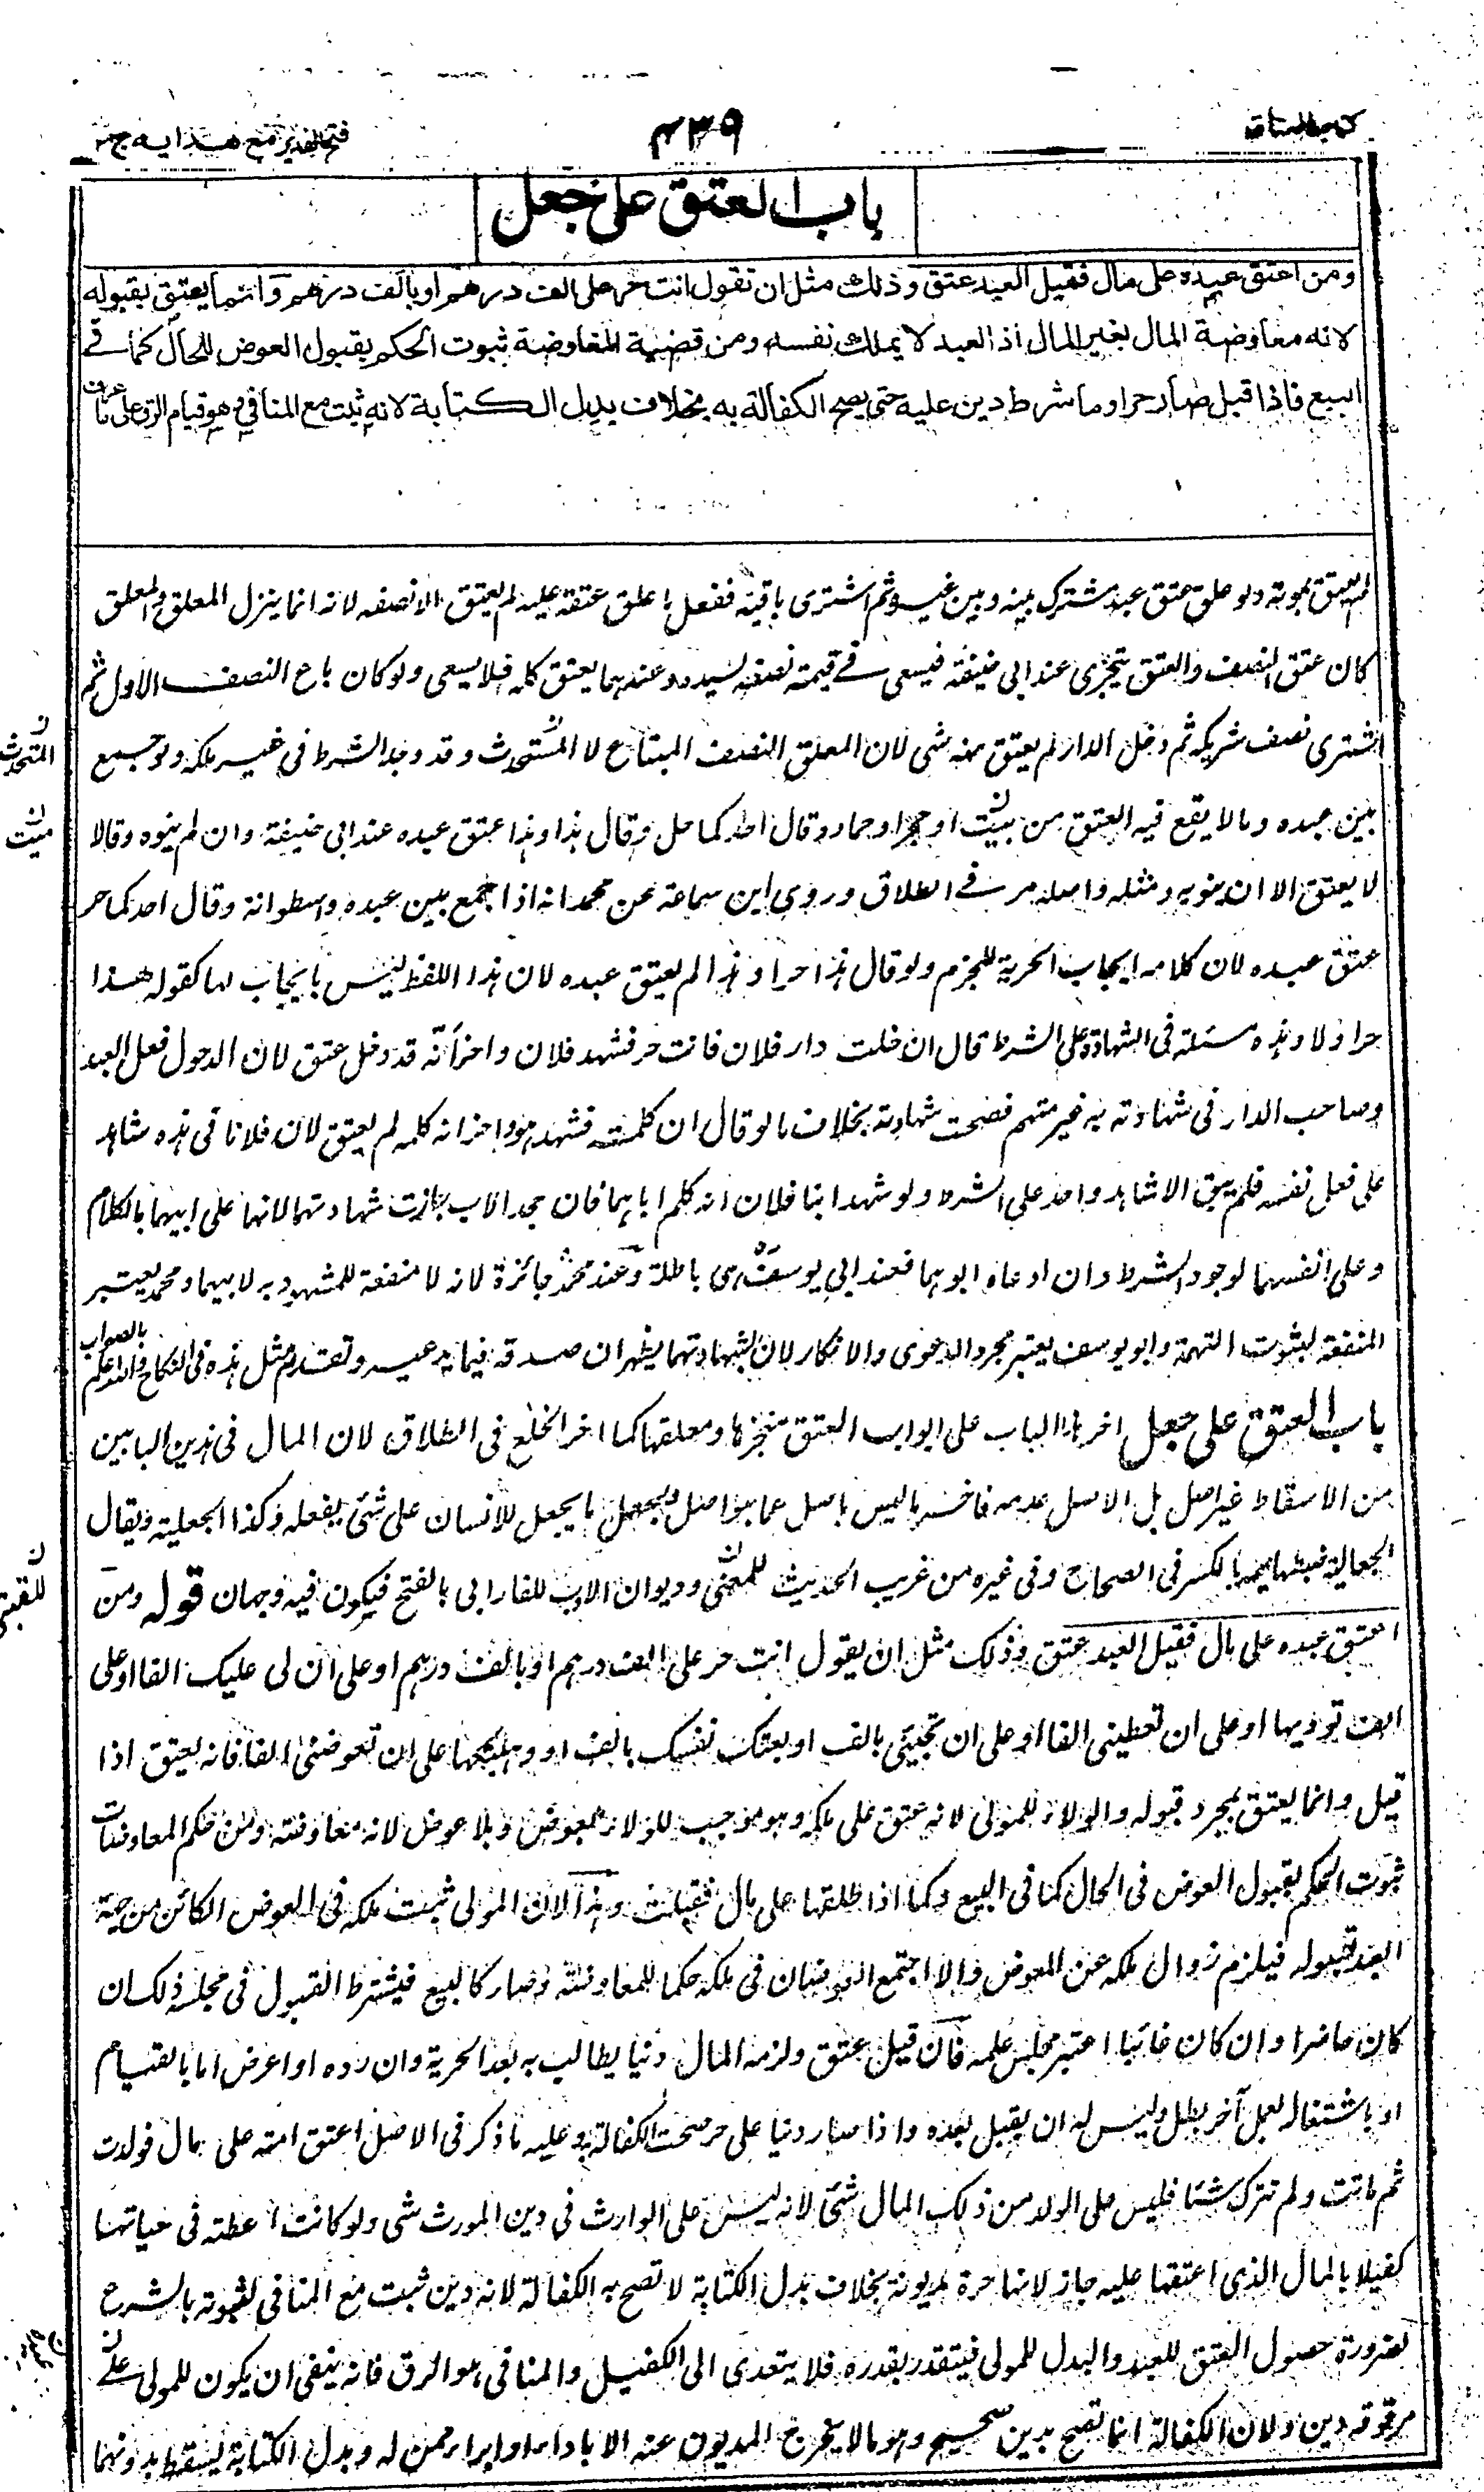 كتاب العتاق
٤٣٩
فتح القدير مع هدايه ج
باب العتق على جعل
ومن اعتق عبده على مال فقبل العبد عتق وذلك مثل ان تقول انت حر على الف درهم او بالف درهم وانما يعتق بقبوله
لانه معاوضة المال بغير المال اذ العبد لا يملك نفسه ومن قضية المعاوضة ثبوت الحكم بقبول العوض للحال كما في
البيع فاذا قبل صار حرا وما شرط دين عليه حتى يصح الكفالة به بخلاف بدل الكتابة لانه ثبت مع المنافي وهو قيام الرق على ما عرف
لم يعتق بموته ولو علق عتق عبد مشترك بينه وبين غيره ثم اشترى باقيه ففعل ما علق عتقه عليه لم يعتق الا نصفه لانه انما ينزل المعلق والمعلق
كان عتق النصف والعتق يتجزى عند ابي حنيفة فيسعى في قيمة نصفه لسيده وعندهما يعتق كله فلا يسعى ولو كان باع النصف الاول ثم
اشترى نصف شريكه ثم دخل الدار لم يعتق منه شى لان المعلق النصف المبتاع لا المستحدث وقد وجد الشرط في غير ملكه ولو جمع
المتحدث
بين عبده وما لا يقع فيه العتق من بيت او حجر او حمار وقال احدكما حر او قال هذا او هذا عتق عبده عند ابي حنيفة وان لم ينوه وقالا
ميت
لا يعتق الا ان ينويه ومثله واصله مر في الطلاق وروى ابن سماعة عن محمد انه اذا جمع بين عبده واسطوانة وقال احدكما حر
عتق عبده لان كلامه ايجاب الحرية للجزم ولو قال هذا حر او هذا لم يعتق عبده لان هذا اللفظ ليس بايجاب لها كقوله هذا
حر اولا وهذه مسئلة في الشهادة على الشرط قال ان دخلت دار فلان فانت حر فشهد فلان واخر انه قد دخل عتق لان الدخول فعل العبد
وصاحب الدار في شهادته به غير متهم فصحت شهادته بخلاف ما لو قال ان كلمته فشهد هو واخر انه كلمه لم يعتق لان فلانا في هذه شاهد
على فعل نفسه فلم يبق الا شاهد واحد على الشرط ولو شهد ابنا فلان انه كلم اباهما فان جحد الاب جازت شهادتهما لانها على ابيهما بالكلام
وعلى انفسهما لوجود الشرط وان ادعاه ابوهما فعند ابي يوسف هى باطلة وعند محمد جائزة لانه لا منفعة للمشهود به لابيهما ومحمد يعتبر
المنفعة لثبوت التهمة وابو يوسف يعتبر مجرد الدعوى والانكار لان بشهادتهما يظهران صدقه فيما يدعيه وتقدم مثل هذه في النكاح والله اعلم بالصواب
باب العتق على جعل اخر هذا الباب على ابواب العتق منجزها ومعلقها كما اخر الخلع في الطلاق لان المال في هذين البابين
من الاسقاط غير اصل بل الاصل عدمه فاخر ما ليس باصل عما هو اصل والجعل ما يجعل للانسان على شئ يفعله وكذا الجعلية ويقال
الجعالة ضبطها بالكسر في الصحاح وفي غيره من غريب الحديث للعتبى وديوان الادب للفارابي بالفتح فيكون فيه وجهان قوله ومن
للقتبى
اعتق عبده على مال فقبل العبد عتق وذلك مثل ان يقول انت حر على الف درهم او بالف درهم او على ان لى عليك الفا او على
الف توديها او على ان تعطينى الفا او على ان تجيئنى بالف او بعتك نفسك بالف او وهبتكها على ان تعوضنى الفا فانه يعتق اذا
قبل وانما يعتق بمجرد قبوله والولاء للمولى لانه عتق على ملكه وهو موجب للولاء بعوض وبلا عوض لانه معاوضة ومن حكم المعاوضات
ثبوت الحكم بقبول العوض في الحال كما في البيع وكما اذا طلقها على مال فقبلت وهذا لان المولى ثبت ملكه في العوض الكائن من جهة
العبد بقبوله فيلزم زوال ملكه عن المعوض والا اجتمع العوضان في ملكه حكما للمعاوضة وصار كالبيع فيشترط القبول في مجلسه ذلك ان
كان حاضرا وان كان غائبا اعتبر مجلس علمه فان قبل عتق ولزمه المال دينا يطالب به بعد الحرية وان رده او اعرض اما بالقيام
او باشتغاله بعمل آخر بطل وليس له ان يقبل بعده واذا صار دينا على حر صحت الكفالة به وعليه ما ذكر في الاصل اعتق امته على مال فولدت
ثم ماتت ولم تترك شئا فليس على الولد من ذلك المال شئ لانه ليس على الوارث في دين المورث شى ولو كانت اعطته في حياتها
كفيلا بالمال الذى اعتقها عليه جاز لانها حرة مديونة بخلاف بدل الكتابة لا تصح به الكفالة لانه دين ثبت مع المنافى لثبوته بالشرع
لضرورة حصول العتق للعبد والبدل للمولى فيتقدر بقدره فلا يتعدى الى الكفيل والمنافى هو الرق فانه ينفى ان يكون للمولى على
مرقوقه دين ولان الكفالة انما تصح بدين صحيح وهو ما لا يخرج المديون عنه الا باداء او ابراء ممن له وبدل الكتابة يسقط بدونهما